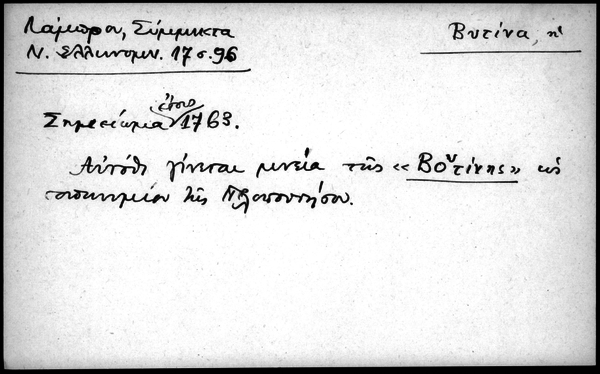 Λάμπρου, Σύμμικτα
Ν. Ελληνομν. 17 σ. 96
Βυτίνα, ἡ
Σημείωμα ἔτους 1763.
Αὐτόθι γίνεται μνεία τῆς «Βοτίνης» ὡς
τοπωνυμίου τῆς Πελοποννήσου.